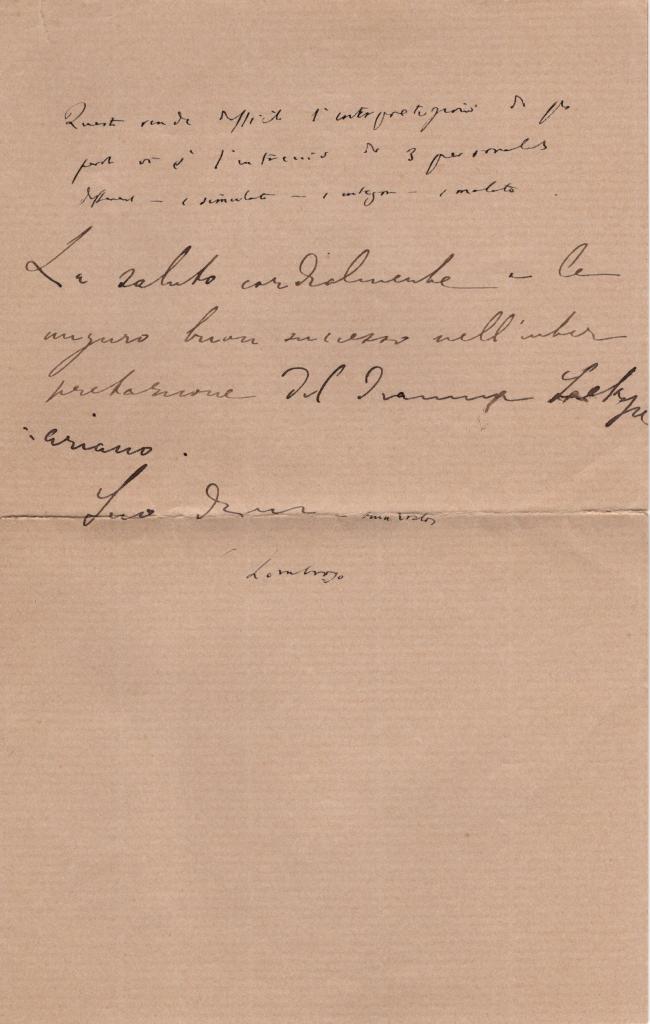 Questo rende difficile l'interpretazione di
perché vi è l'intreccio di 3 personalità
different – 1 simulata – 1 integra – 1 malata
La saluto cordialmente e le
auguro buon successo nell'inter
pretazione del dramma Sackspe
:ariano.
Suo
Lombroso